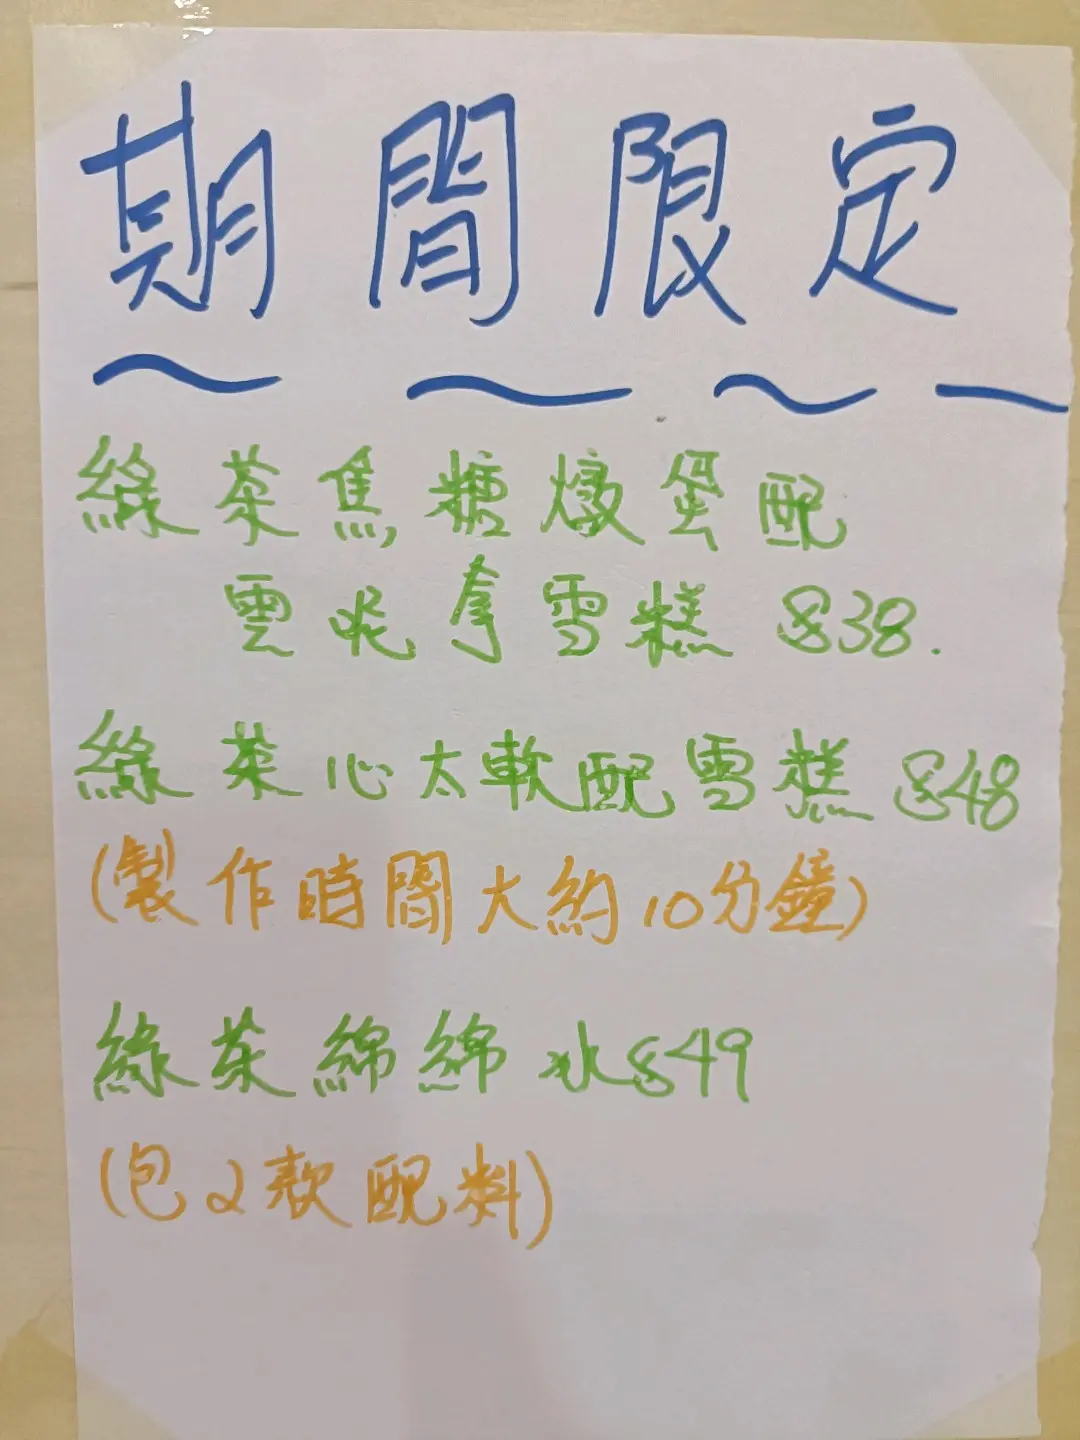 期間限定
綠茶焦糖燉蛋配
雲呢拿雪糕 $38.
綠茶心太軟配雪糕 $48
(製作時間大約10分鐘)
綠茶綿綿冰$49
(包2款配料)